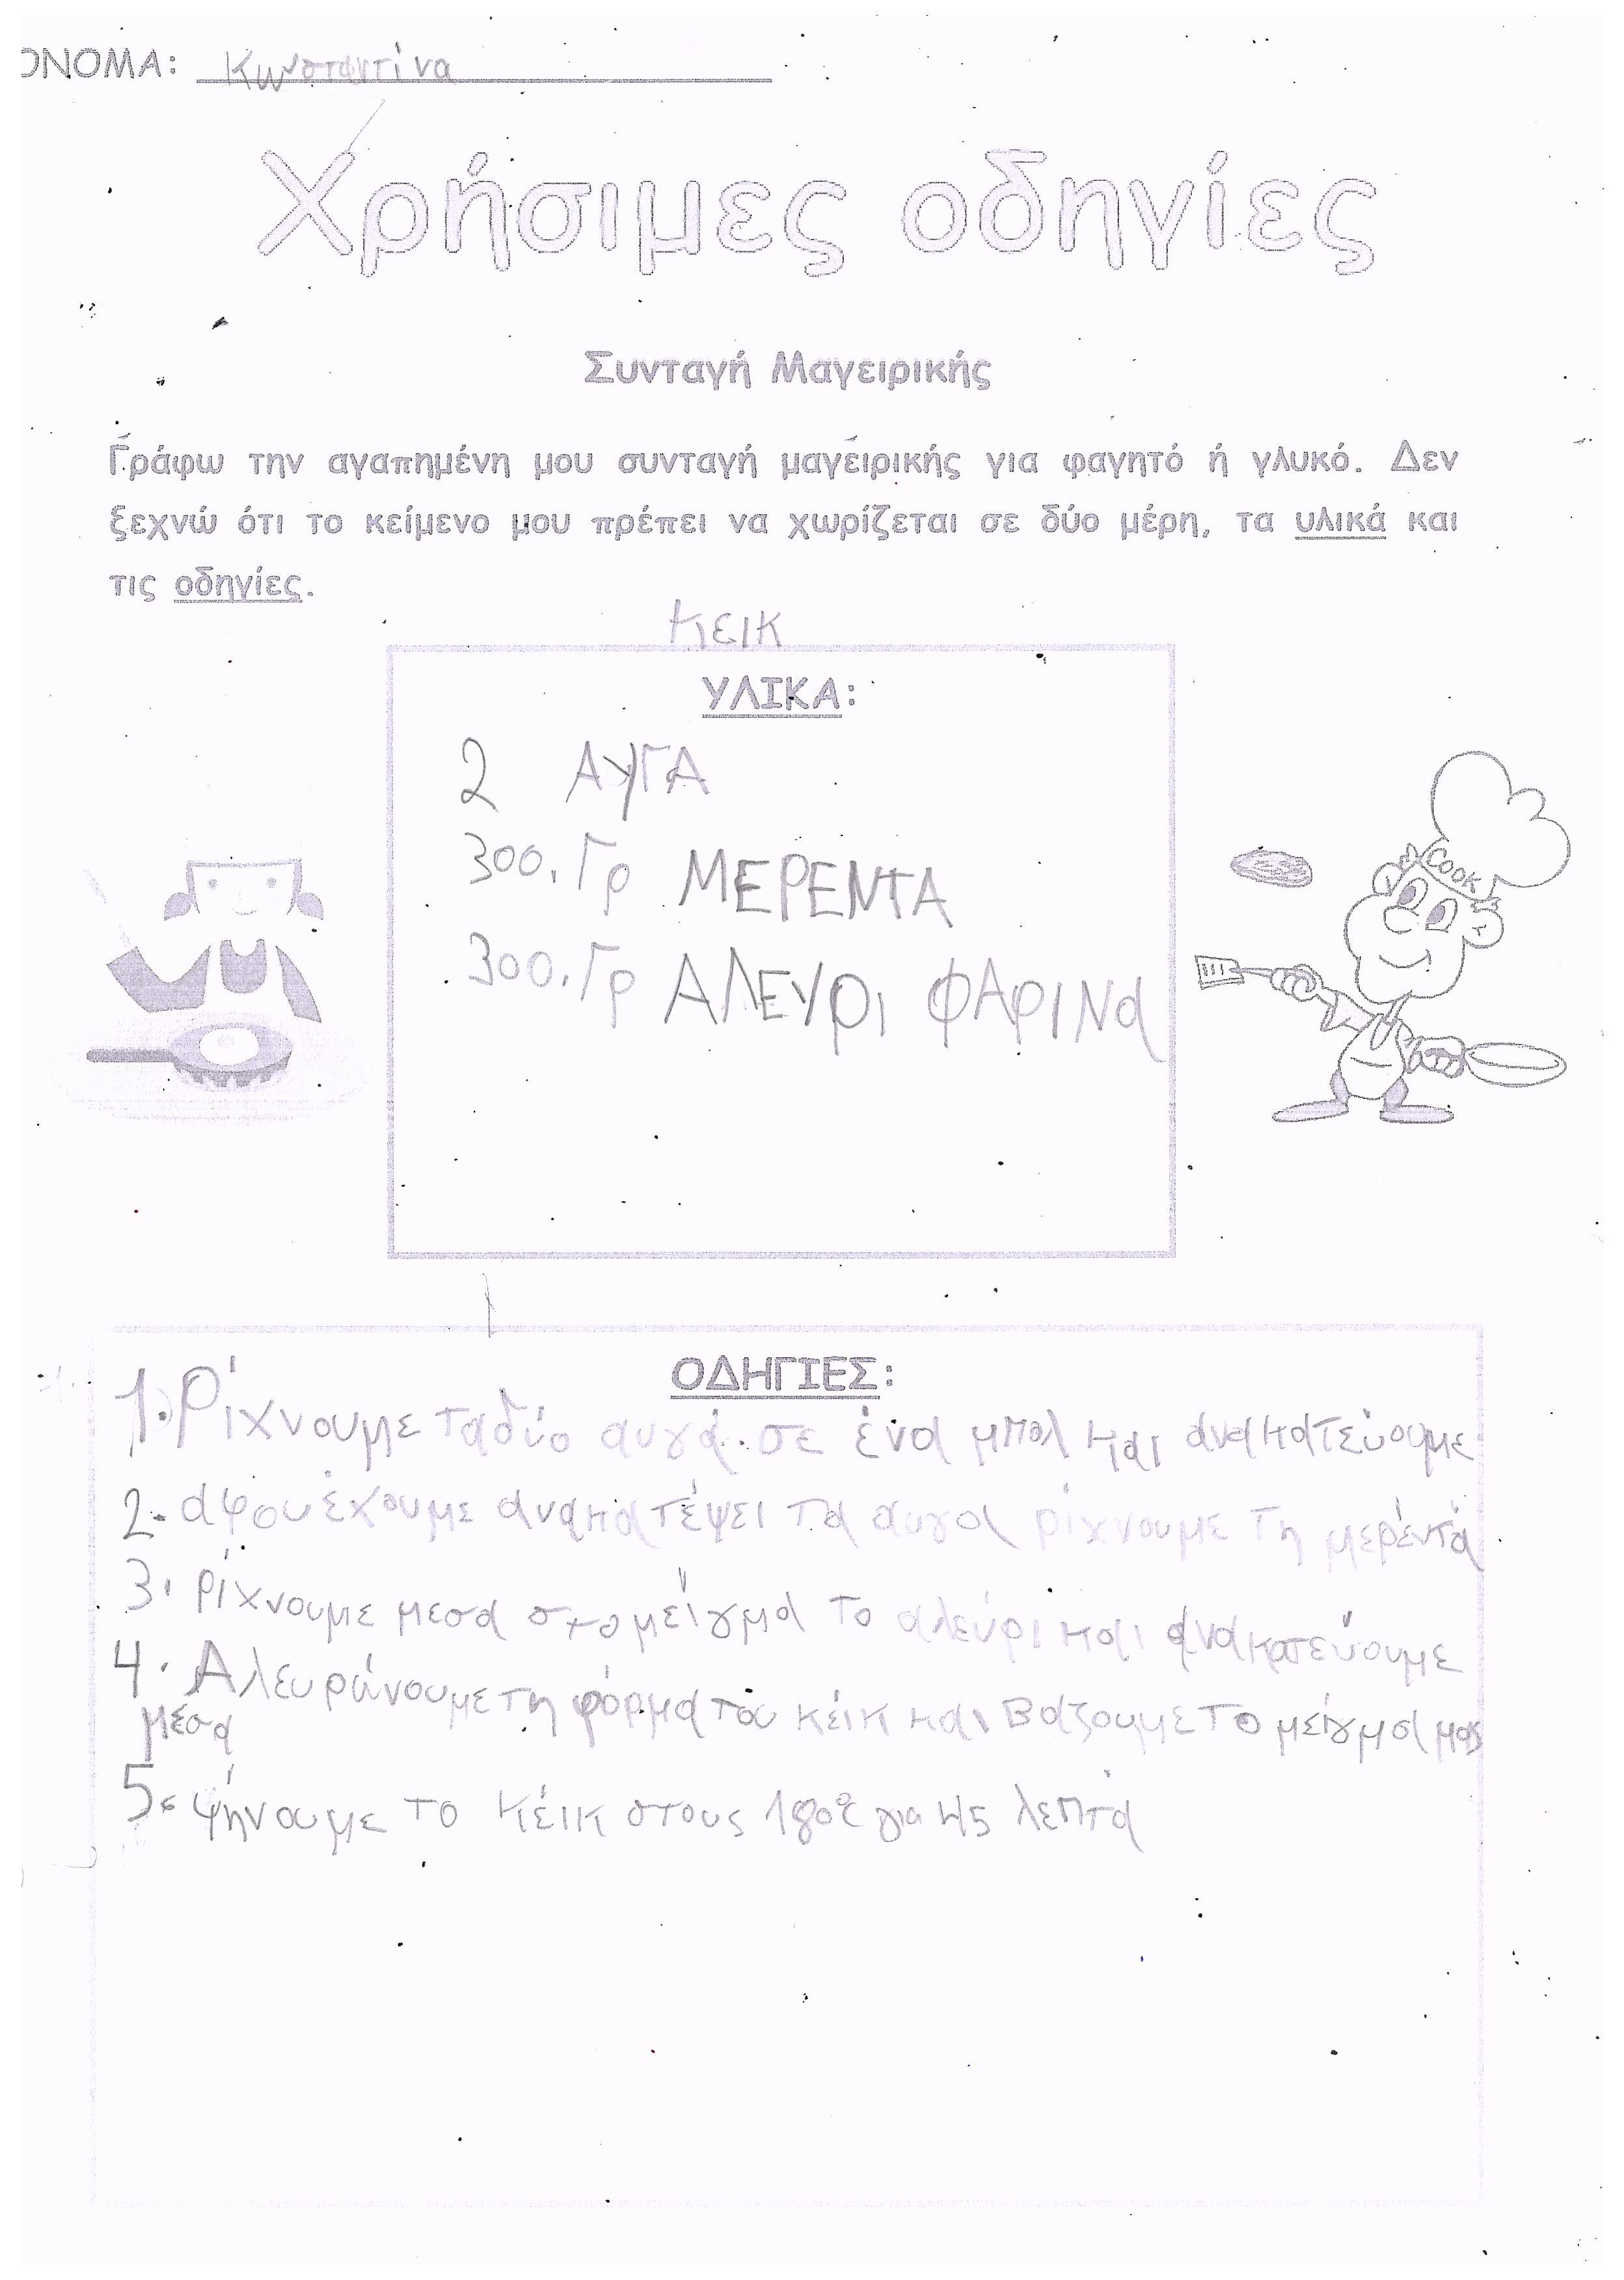 ΟΝΟΜΑ: Κωνσταντίνα
Χρήσιμες οδηγίες
Συνταγή Μαγειρικής
Γράφω την αγαπημένη μου συνταγή μαγειρικής για φαγητό ή γλυκό. Δεν
ξεχνώ ότι το κείμενο μου πρέπει να χωρίζεται σε δύο μέρη, τα υλικά και
τις οδηγίες.
κεικ
ΥΛΙΚΑ:
2 ΑΥΓΑ
300.Γρ ΜΕΡΕΝΤΑ
300.Γρ ΑΛΕΥΡΙ ΦΑΡΙΝα
Cook
ΟΔΗΓΙΕΣ:
1. Ρίχνουμε τα δύο αυγά. σε ένα μπολ και ανακατεύουμε
2. αφου έχουμε ανακατέψει τα αυγα ρίχνουμε τη μερέντα
3. ρίχνουμε μεσα στο μείγμα το αλεύρι και ανακατεύουμε
4. Αλευρώνουμε τη φόρμα του κέικ και Βαζουμε το μείγμα μας
μέσα
5. ψήνουμε το κέικ στους 180°C για 45 λεπτά